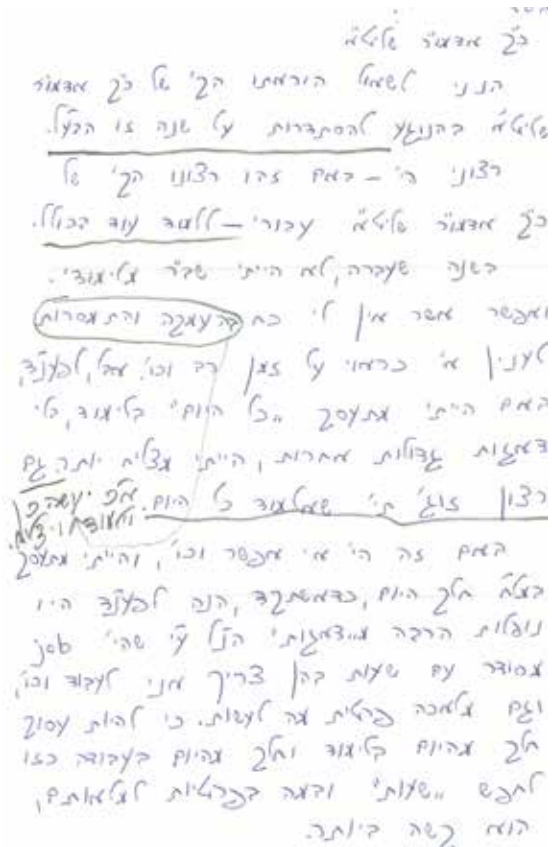 כ"ק אדמו"ר שליט"א
הנני לשאול הוראתו הק' של כ"ק אדמו"ר
שליט"א בהנוגע להסתדרות על שנה זו הבע"ל.
רצוני הי' – באם זהו רצונו הק' של
כ"ק אדמו"ר שליט"א עבורי – ללמוד עוד בכולל.
בשנה שעברה, לא הייתי שב"ר מלימודי.
ואפשר אשר אין לי כח בהעמקה והתמסרות
לענין א' כראוי על זמן רב וכו'. אבל, לפענ"ד,
באם הייתי מתעסק "כל היום" בלימוד, בלי
דאגות גדולות אחרות, הייתי מצליח יותר. גם
רצון זוג' תי' שאלמוד כל היום.
א"כ יעשה כן
ולעוד"ז ויצליח.
באם זה הי' אי אפשר וכו', והייתי מתעסק
בעט"מ חלק היום, כדאשתקד, הנה לפענ"ד היו
נופלות הרבה מ"דאגותי" הנ"ל ע"י שהי' job
מסודר עם שעות בהן צריך אני לעבוד וכו',
וגם מלאכה פרטית מה לעשות. כי להיות עסוק
חלק מהיום בלימוד וחלק מהיום בעבודה כזו
לחפש "שעות" ובמה בפרטיות למלאותם,
הוא קשה ביותר.